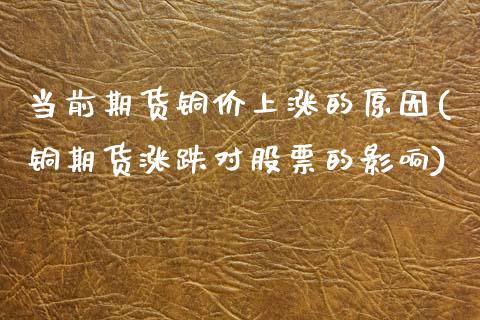 当前期货铜价上涨的原因(
铜期货涨跌对股票的影响)